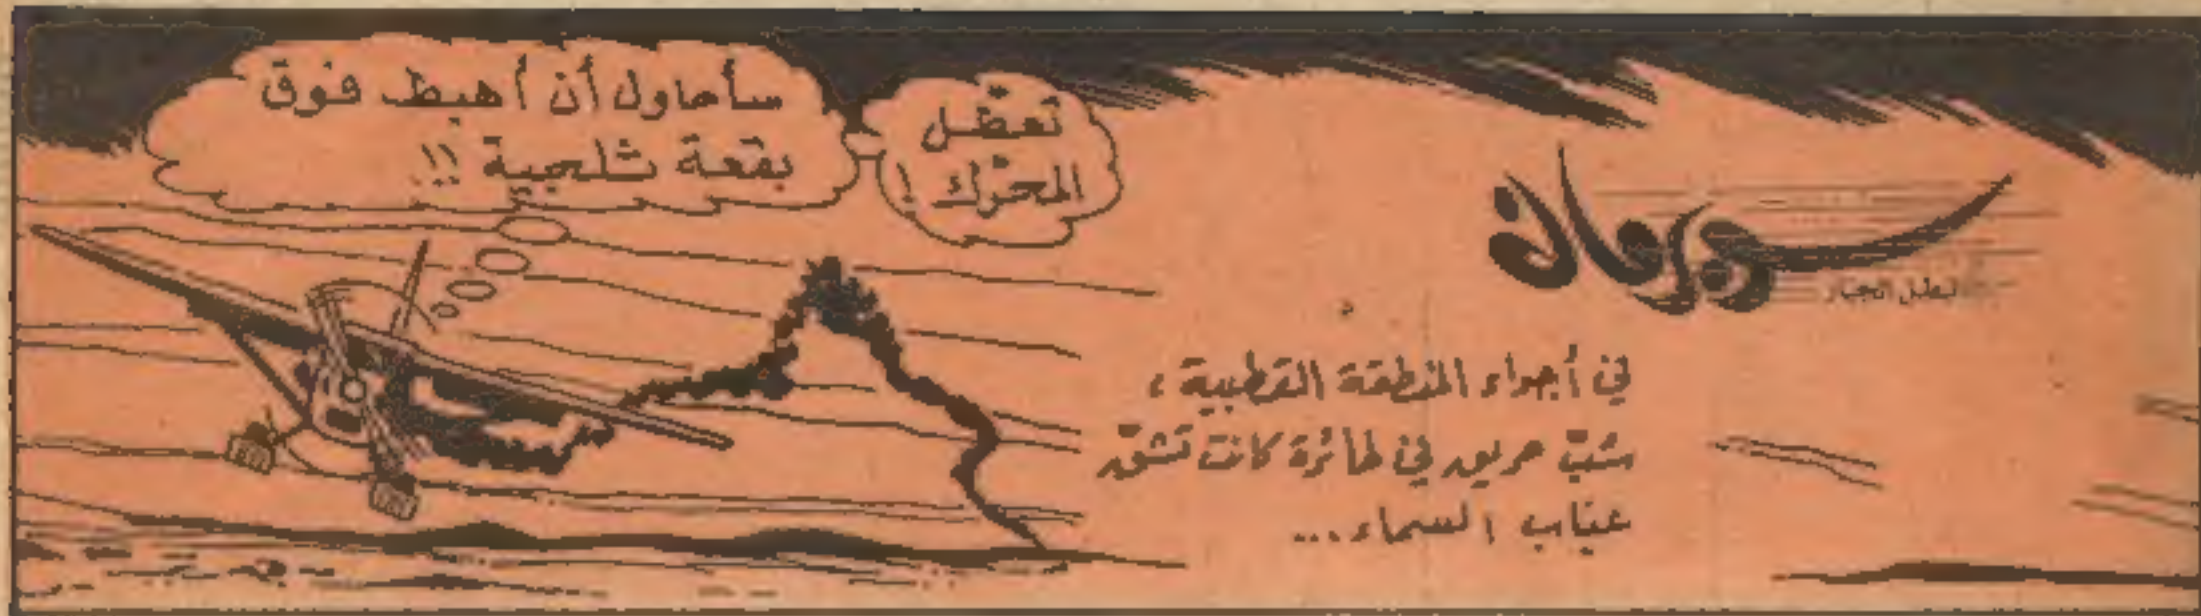 سوبرمان
البطل الجبار
في أجواء المنطقة القطبية،
شبّ حريق في طائرة كانت تشقّ
عباب السماء...
تعطّل
المحرّك!
سأحاول أن أهبط فوق
بقعة ثلجية!!